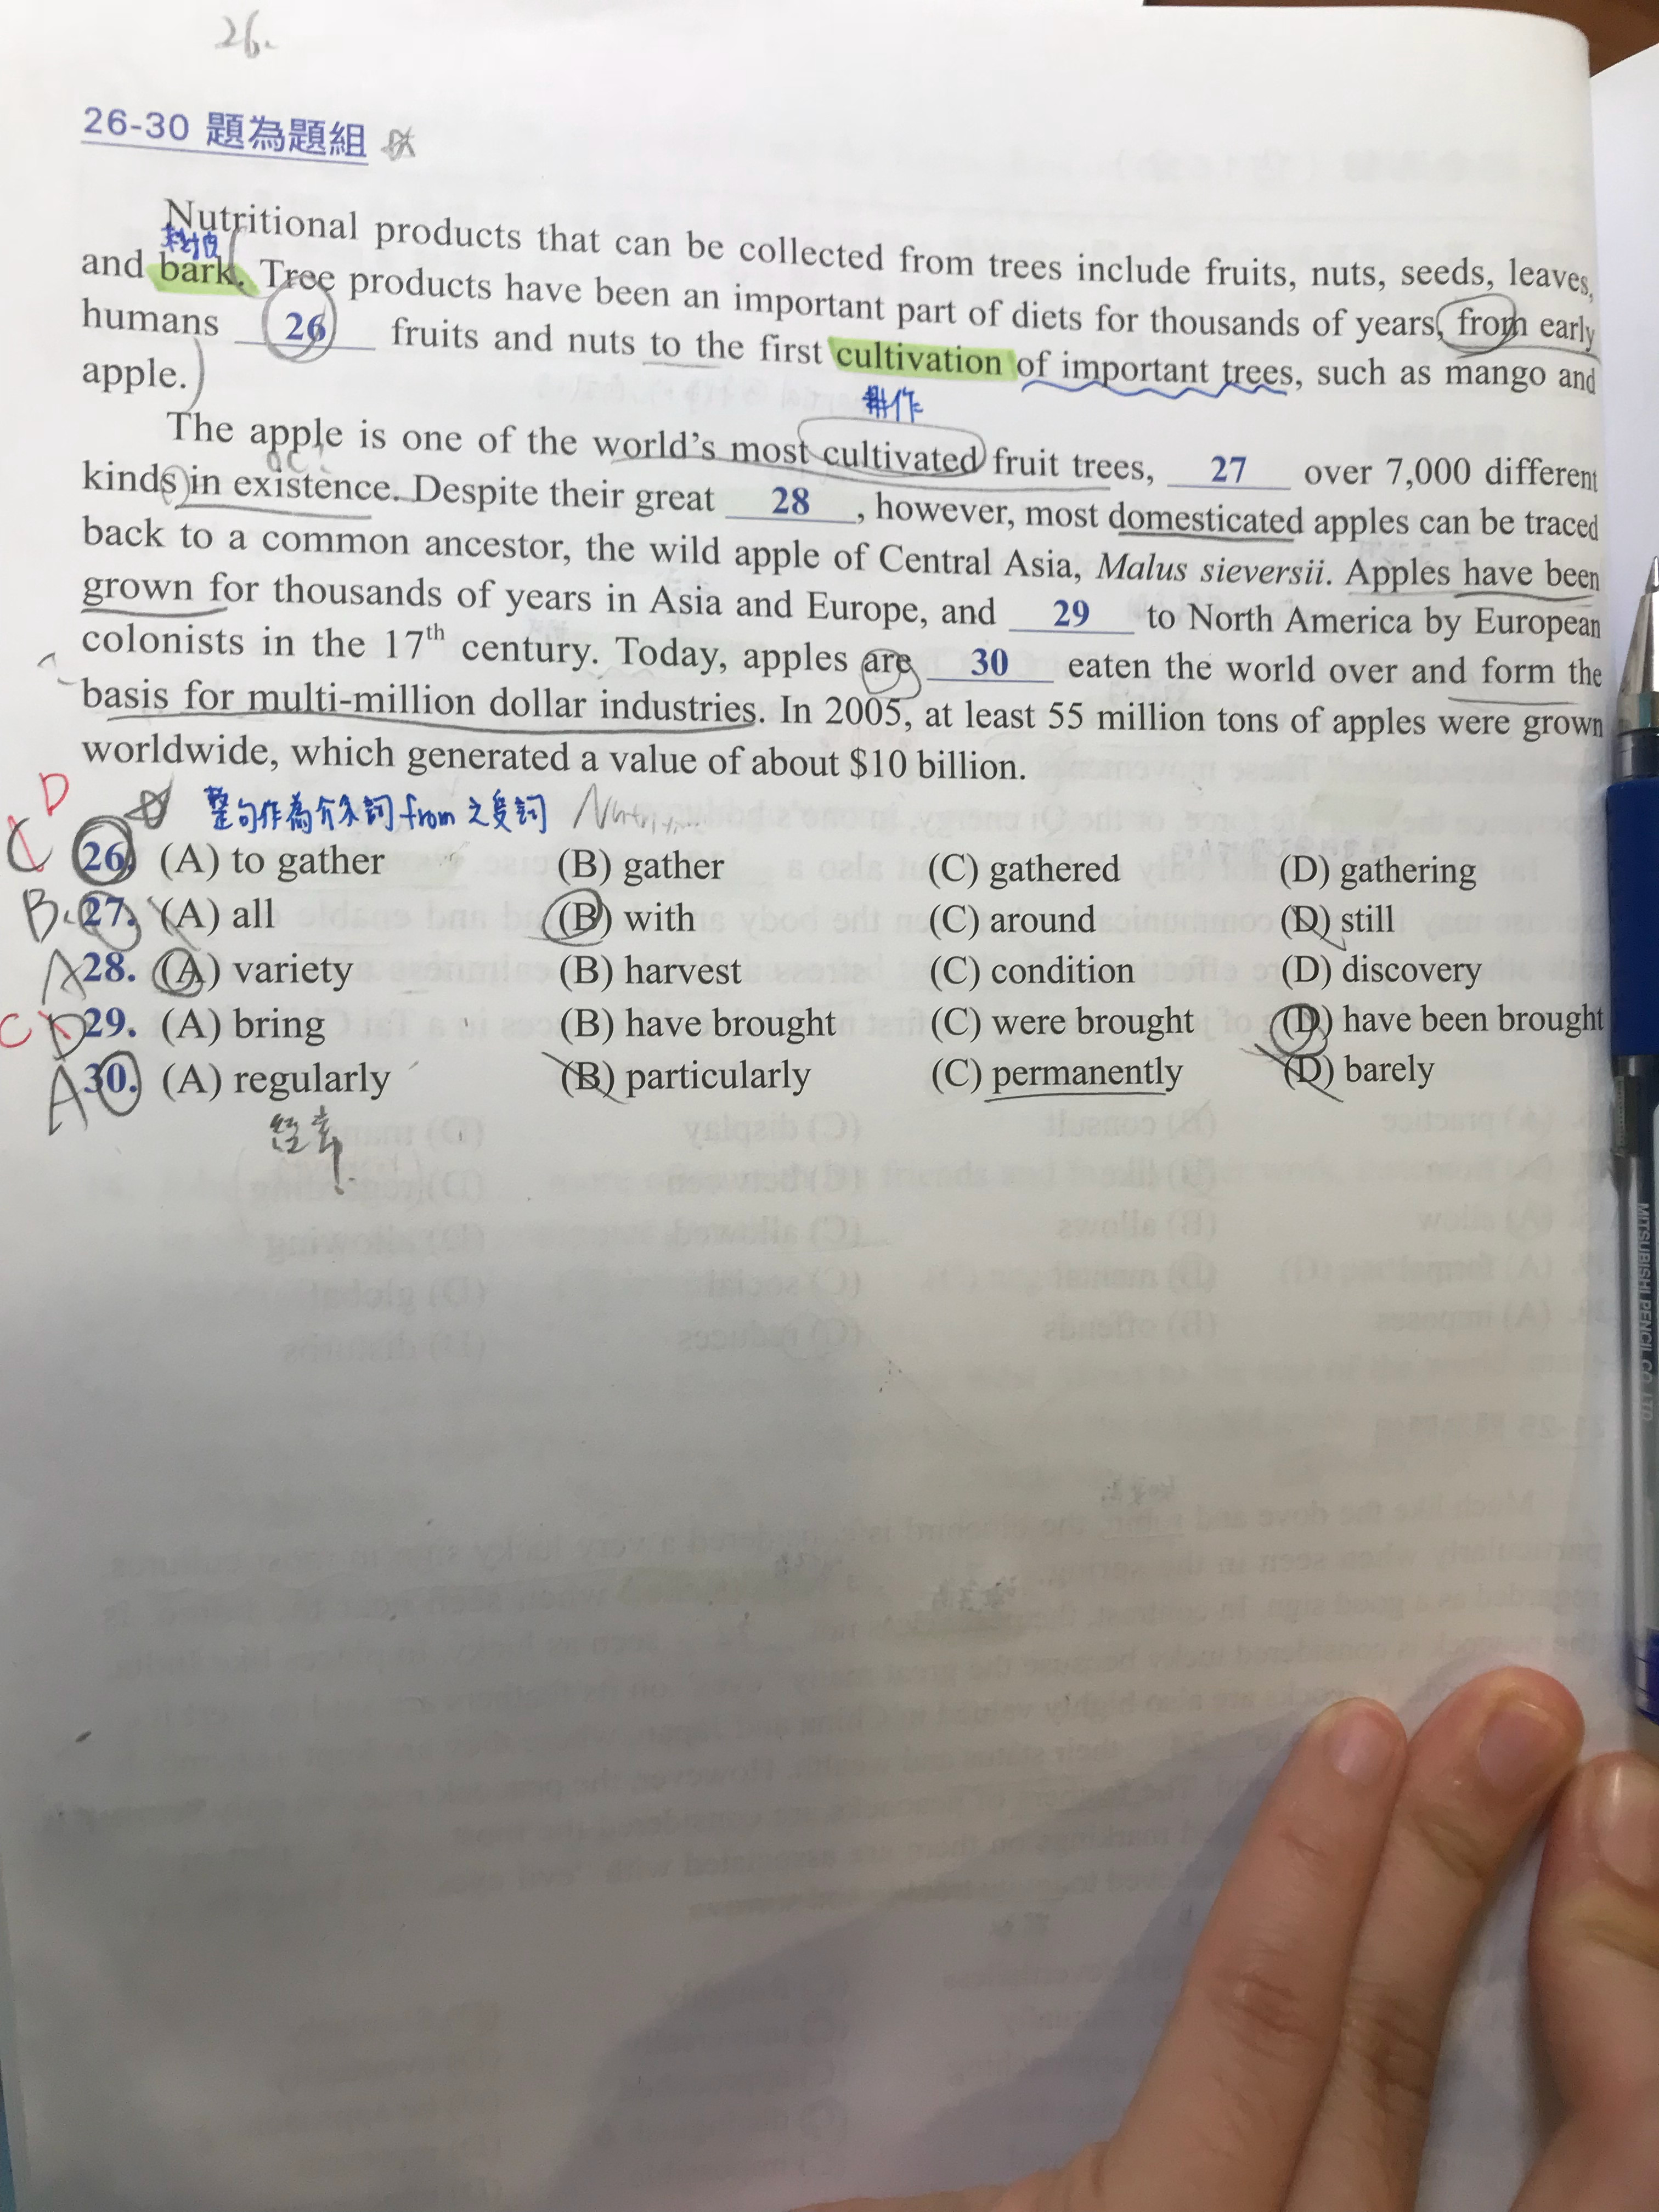 26.
26-30 題為題組
Nutritional products that can be collected from trees include fruits, nuts, seeds, leaves,
樹皮
and bark. Tree products have been an important part of diets for thousands of years, from early
humans 26 fruits and nuts to the first cultivation of important trees, such as mango and
apple.
耕作
The apple is one of the world's most cultivated fruit trees, 27 over 7,000 different
kinds in existence. Despite their great 28 , however, most domesticated apples can be traced
back to a common ancestor, the wild apple of Central Asia, Malus sieversii. Apples have been
grown for thousands of years in Asia and Europe, and 29 to North America by European
colonists in the 17th century. Today, apples are 30 eaten the world over and form the
basis for multi-million dollar industries. In 2005, at least 55 million tons of apples were grown
worldwide, which generated a value of about $10 billion.
D
整句作為介系詞 from 之受詞
C 26. (A) to gather (B) gather (C) gathered (D) gathering
B. 27. (A) all (B) with (C) around (D) still
A 28. (A) variety (B) harvest (C) condition (D) discovery
C D 29. (A) bring (B) have brought (C) were brought (D) have been brought
A 30. (A) regularly (B) particularly (C) permanently (D) barely
MITSUBISHI PENCIL CO., LTD